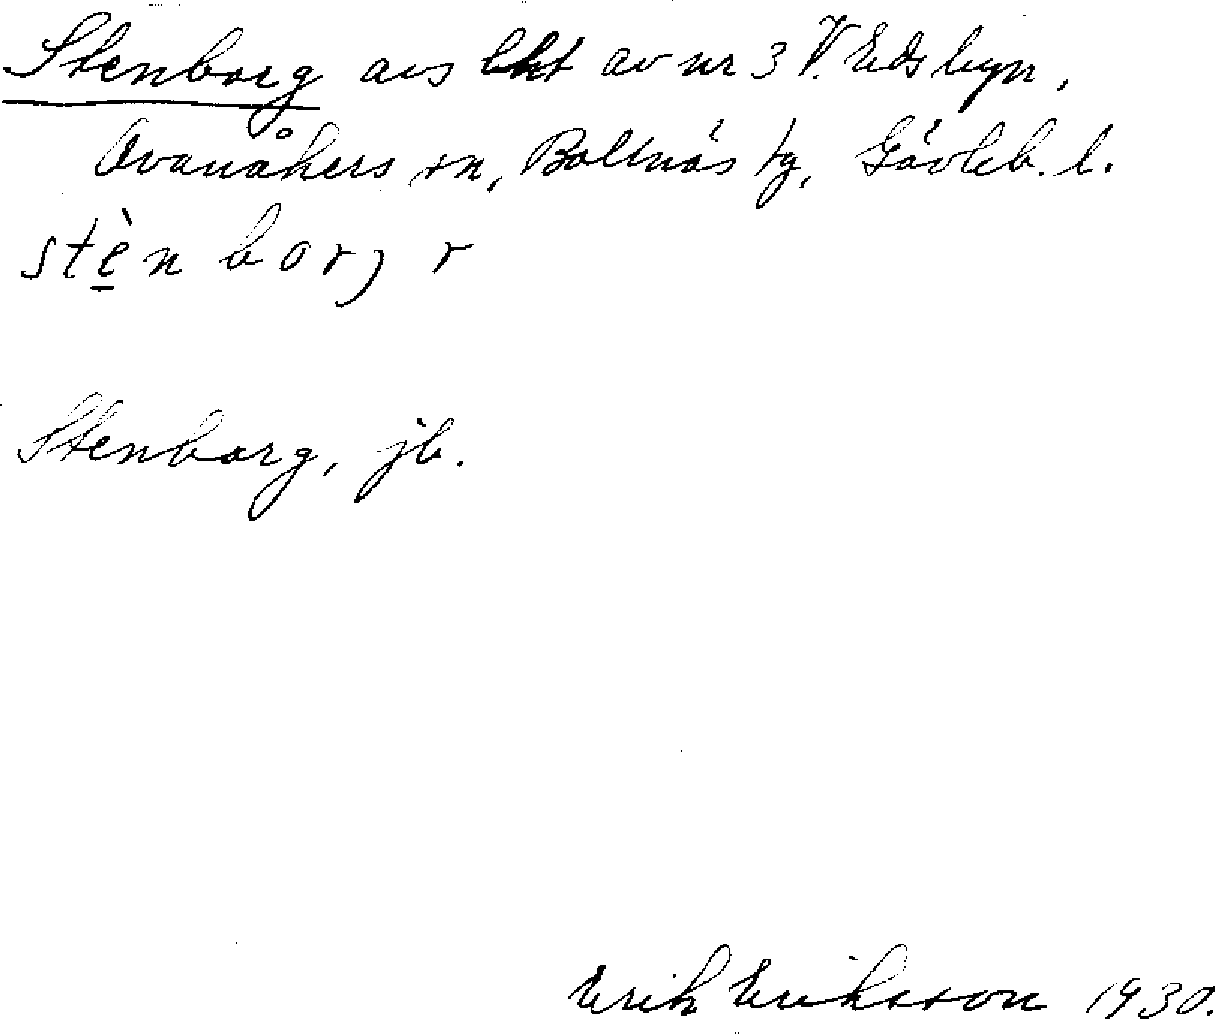 Stenborg avs lht av nr 3 V. Edsbyn,
Ovanåkers sn, Bollnäs tg, Gävleb. l.
stèn borj r
Stenborg, jb.
Erik Eriksson 1930.